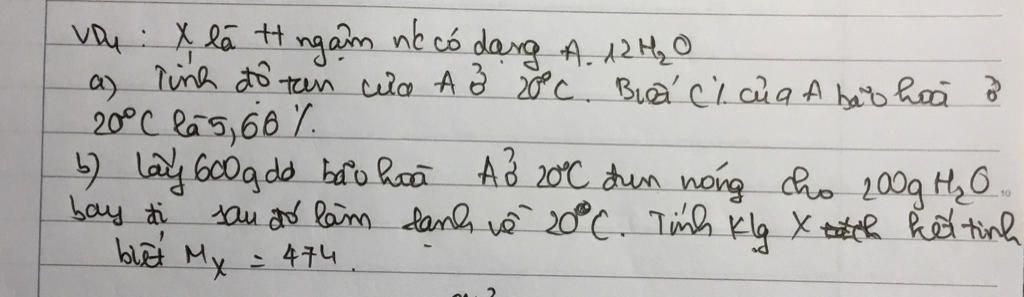 VD1 : X là tt ngậm nc có dạng A. 12H2O
a) Tính độ tan của A ở 20°C. Biết C% của A bão hoà ở
20°C là 5,66 %.
b) Lấy 600g dd bão hoà A ở 20°C đun nóng cho 200g H2O
bay đi sau đó làm lạnh về 20°C. Tính klg X kết tinh
biết MX = 474.